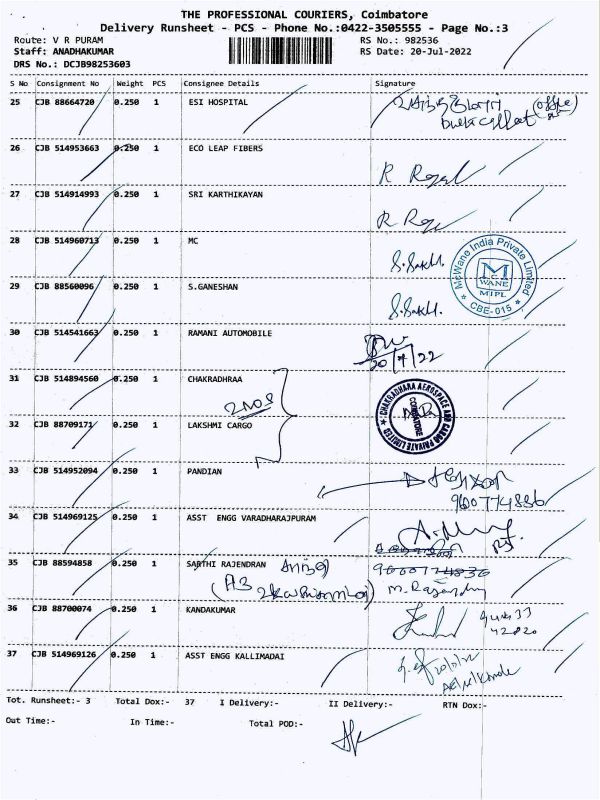 THE PROFESSIONAL COURIERS, Coimbatore
Delivery Runsheet - PCS - Phone No.:0422-3505555 - Page No.:3
Route: V R PURAM RS No.: 982536
Staff: ANADHAKUMAR RS Date: 20-Jul-2022
DRS No.: DCJB98253603
S No Consignment No Weight PCS Consignee Details Signature
25 CJB 88664720 0.250 1 ESI HOSPITAL
26 CJB 514953663 0.250 1 ECO LEAP FIBERS
27 CJB 514914993 0.250 1 SRI KARTHIKAYAN
28 CJB 514960713 0.250 1 MC
McWane India Private Limited
M WANE
MIPL
CBE-015
29 CJB 88560096 0.250 1 S.GANESHAN
30 CJB 514541663 0.250 1 RAMANI AUTOMOBILE
20/7/22
31 CJB 514894560 0.250 1 CHAKRADHRAA
2NOS
CHAKRADHARA AEROSPACE AND CARGO PRIVATE LIMITED
COIMBATORE
32 CJB 88709171 0.250 1 LAKSHMI CARGO
33 CJB 514952094 0.250 1 PANDIAN
34 CJB 514969125 0.250 1 ASST ENGG VARADHARAJPURAM
35 CJB 88594858 0.250 1 SARTHI RAJENDRAN
36 CJB 88700074 0.250 1 KANDAKUMAR
37 CJB 514969126 0.250 1 ASST ENGG KALLIMADAI
Tot. Runsheet:- 3 Total Dox:- 37 I Delivery:- II Delivery:- RTN Dox:-
Out Time:- In Time:- Total POD:-